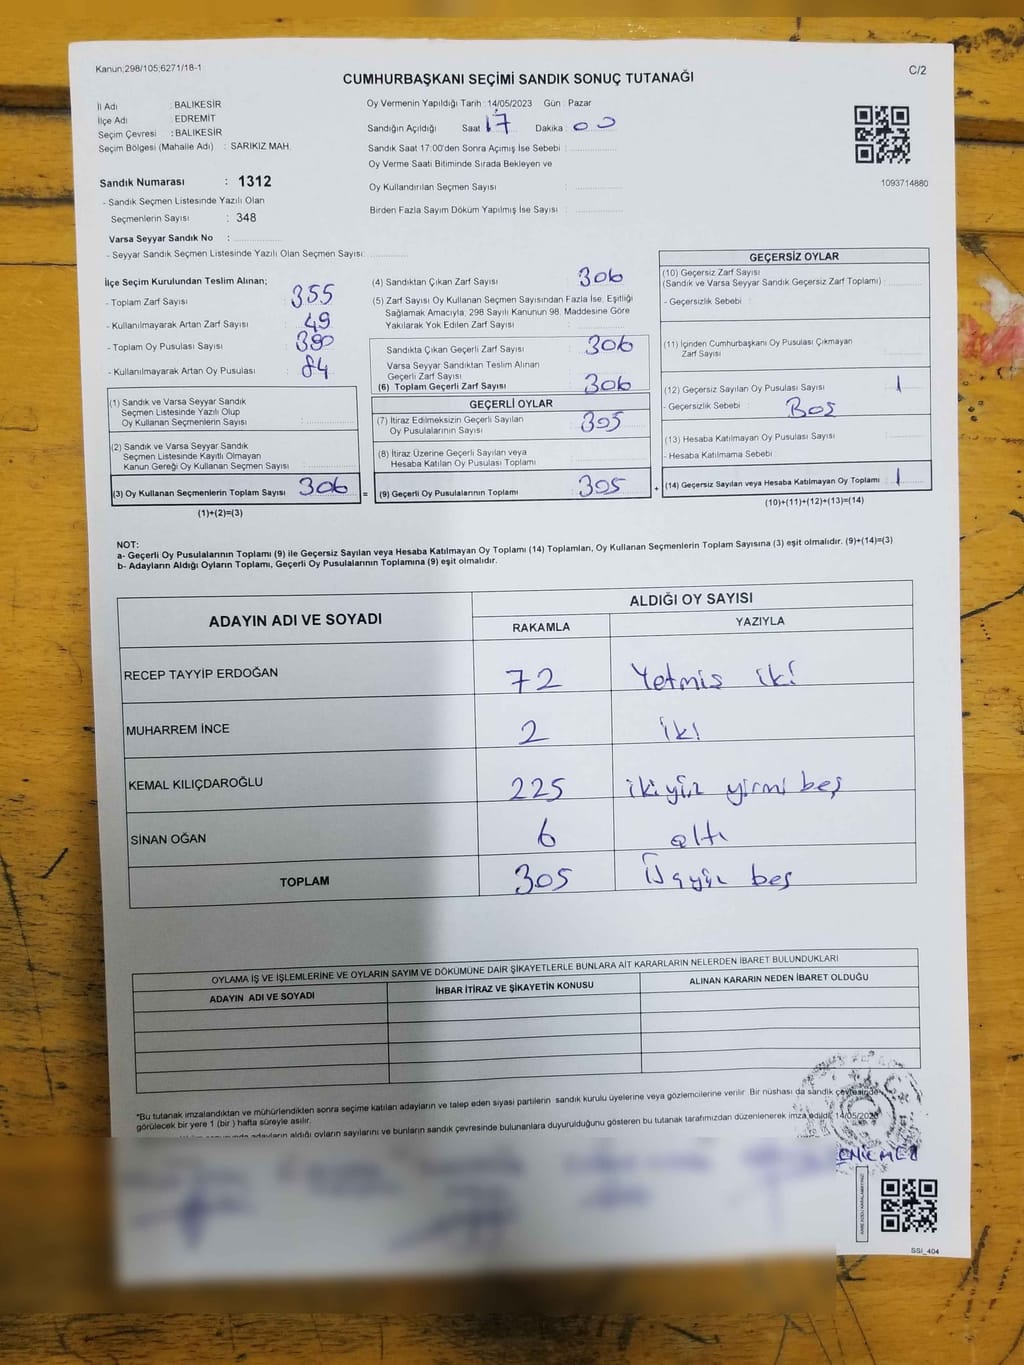 Kanun;298/105;6271/18-1
C/2
CUMHURBAŞKANI SEÇİMİ SANDIK SONUÇ TUTANAĞI
İl Adı : BALIKESİR
İlçe Adı : EDREMİT
Seçim Çevresi : BALIKESİR
Seçim Bölgesi (Mahalle Adı) : SARIKIZ MAH.
Sandık Numarası : 1312
- Sandık Seçmen Listesinde Yazılı Olan
Seçmenlerin Sayısı : 348
Varsa Seyyar Sandık No :
- Seyyar Sandık Seçmen Listesinde Yazılı Olan Seçmen Sayısı:
Oy Vermenin Yapıldığı Tarih : 14/05/2023 Gün : Pazar
Sandığın Açıldığı Saat 17 Dakika 00
Sandık Saat 17:00'den Sonra Açımış İse Sebebi :
Oy Verme Saati Bitiminde Sırada Bekleyen ve
Oy Kullandırılan Seçmen Sayısı :
Birden Fazla Sayım Döküm Yapılmış İse Sayısı :
1093714880
İlçe Seçim Kurulundan Teslim Alınan;
- Toplam Zarf Sayısı : 355
- Kullanılmayarak Artan Zarf Sayısı : 49
- Toplam Oy Pusulası Sayısı : 390
- Kullanılmayarak Artan Oy Pusulası : 84
(1) Sandık ve Varsa Seyyar Sandık
Seçmen Listesinde Yazılı Olup
Oy Kullanan Seçmenlerin Sayısı :
(2) Sandık ve Varsa Seyyar Sandık
Seçmen Listesinde Kayıtlı Olmayan
Kanun Gereği Oy Kullanan Seçmen Sayısı :
(3) Oy Kullanan Seçmenlerin Toplam Sayısı 306 =
(1)+(2)=(3)
(4) Sandıktan Çıkan Zarf Sayısı : 306
(5) Zarf Sayısı Oy Kullanan Seçmen Sayısından Fazla İse, Eşitliği
Sağlamak Amacıyla, 298 Sayılı Kanunun 98. Maddesine Göre
Yakılarak Yok Edilen Zarf Sayısı :
Sandıkta Çıkan Geçerli Zarf Sayısı : 306
Varsa Seyyar Sandıktan Teslim Alınan
Geçerli Zarf Sayısı :
(6) Toplam Geçerli Zarf Sayısı : 306
GEÇERLİ OYLAR
(7) İtiraz Edilmeksizin Geçerli Sayılan
Oy Pusulalarının Sayısı : 305
(8) İtiraz Üzerine Geçerli Sayılan veya
Hesaba Katılan Oy Pusulası Toplamı :
(9) Geçerli Oy Pusulalarının Toplamı : 305 +
GEÇERSİZ OYLAR
(10) Geçersiz Zarf Sayısı
(Sandık ve Varsa Seyyar Sandık Geçersiz Zarf Toplamı) :
- Geçersizlik Sebebi :
(11) İçinden Cumhurbaşkanı Oy Pusulası Çıkmayan
Zarf Sayısı :
(12) Geçersiz Sayılan Oy Pusulası Sayısı : 1
- Geçersizlik Sebebi : Boş
(13) Hesaba Katılmayan Oy Pusulası Sayısı :
- Hesaba Katılmama Sebebi :
(14) Geçersiz Sayılan veya Hesaba Katılmayan Oy Toplamı : 1
(10)+(11)+(12)+(13)=(14)
NOT:
a- Geçerli Oy Pusulalarının Toplamı (9) ile Geçersiz Sayılan veya Hesaba Katılmayan Oy Toplamı (14) Toplamları, Oy Kullanan Seçmenlerin Toplam Sayısına (3) eşit olmalıdır. (9)+(14)=(3)
b- Adayların Aldığı Oyların Toplamı, Geçerli Oy Pusulalarının Toplamına (9) eşit olmalıdır.
ADAYIN ADI VE SOYADI
ALDIĞI OY SAYISI
RAKAMLA YAZIYLA
RECEP TAYYİP ERDOĞAN 72 Yetmiş iki
MUHARREM İNCE 2 iki
KEMAL KILIÇDAROĞLU 225 ikiyüz yirmi beş
SİNAN OĞAN 6 altı
TOPLAM 305 Üçyüz beş
OYLAMA İŞ VE İŞLEMLERİNE VE OYLARIN SAYIM VE DÖKÜMÜNE DAİR ŞİKAYETLERLE BUNLARA AİT KARARLARIN NELERDEN İBARET BULUNDUKLARI
ADAYIN ADI VE SOYADI
İHBAR İTİRAZ VE ŞİKAYETİN KONUSU
ALINAN KARARIN NEDEN İBARET OLDUĞU
*Bu tutanak imzalandıktan ve mühürlendikten sonra seçime katılan adayların ve talep eden siyasi partilerin sandık kurulu üyelerine veya gözlemcilerine verilir. Bir nüshası da sandık çevresinde
görülecek bir yere 1 (bir) hafta süreyle asılır.
adayların aldığı oyların sayılarını ve bunların sandık çevresinde bulunanlara duyurulduğunu gösteren bu tutanak tarafımızdan düzenlenerek imza edildi. 14/05/2023
SSI_404